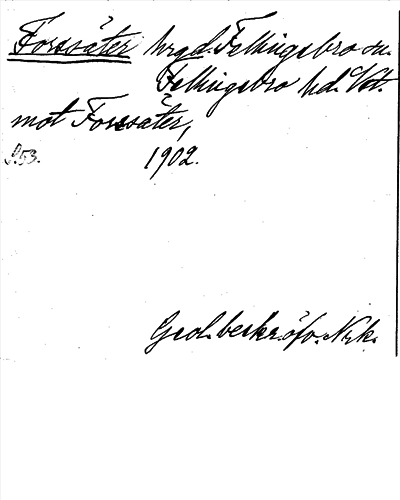 Forssäter hrgd. Fellingsbro sn.
Fellingsbro hd. Vst.
mot Forssäter,
S. 53. 1902.
Geol. beskr. öfv. Nrk.